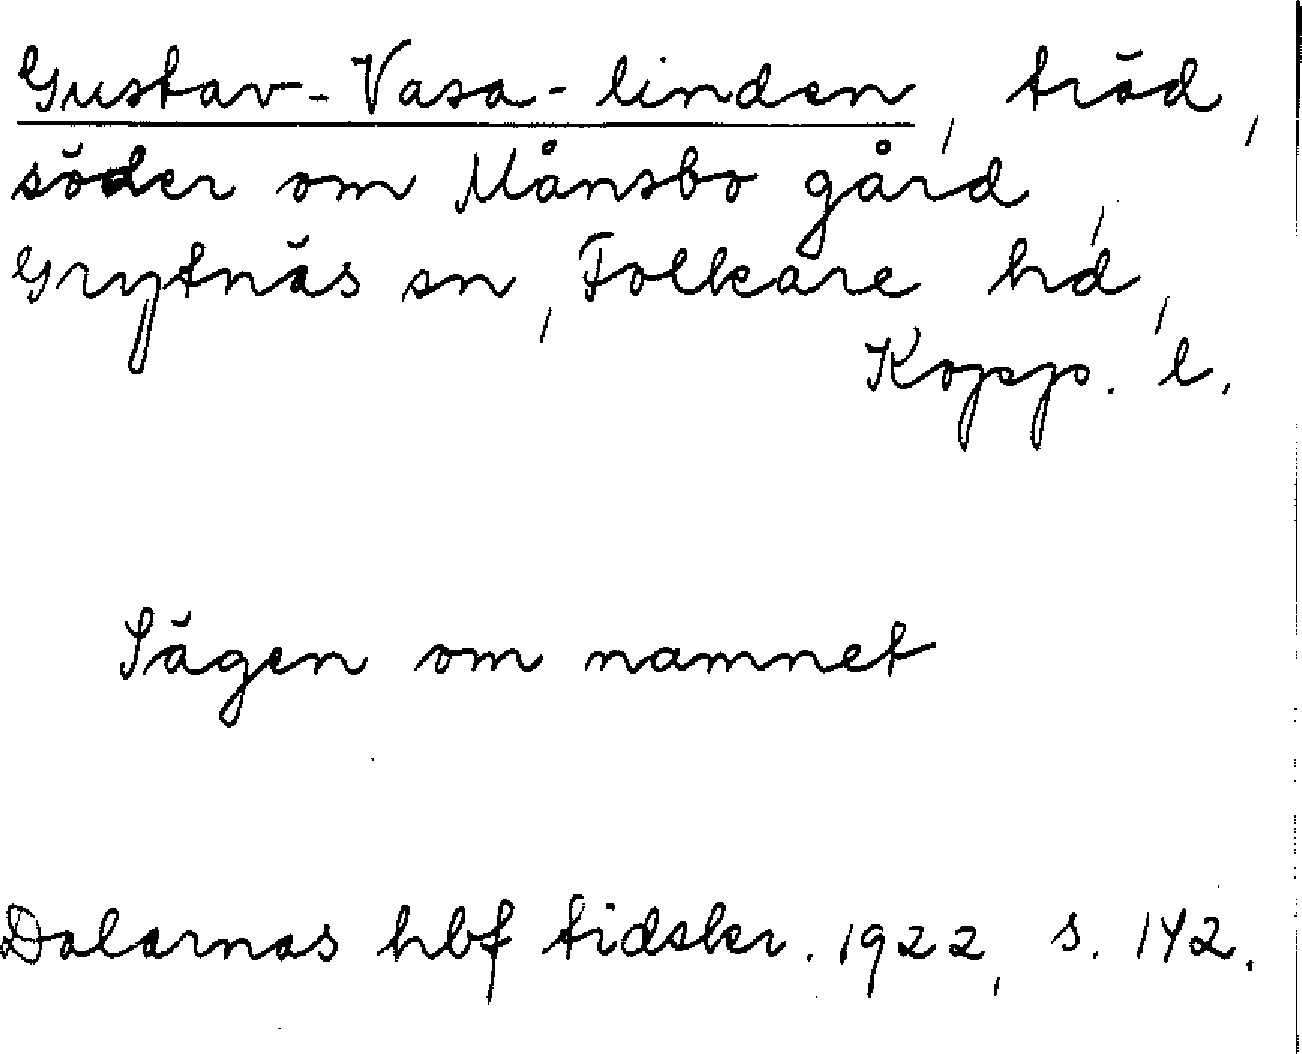 Gustav-Vasa-linden, träd,
söder om Månsbo gård,
Grytnäs sn, Folkare hd,
Kopp. l.
Sägen om namnet
Dalarnas hbf tidskr. 1922, s. 142.